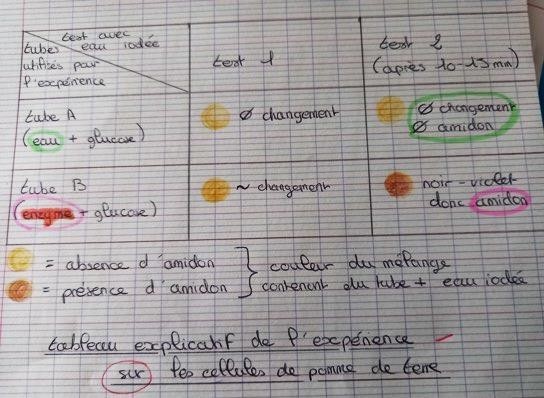 test avec
eau iodée
tubes
utilisés pour
l'expérience
test 1
test 2
(après 10-15 min)
tube A
(eau + glucose)
Ø changement
Ø changement
Ø amidon
tube B
(enzyme + glucose)
~ changement
noir-violet
donc amidon
= absence d'amidon
= présence d'amidon
} couleur du mélange
contenant du tube + eau iodée
tableau explicatif de l'expérience
sur les cellules de pomme de terre